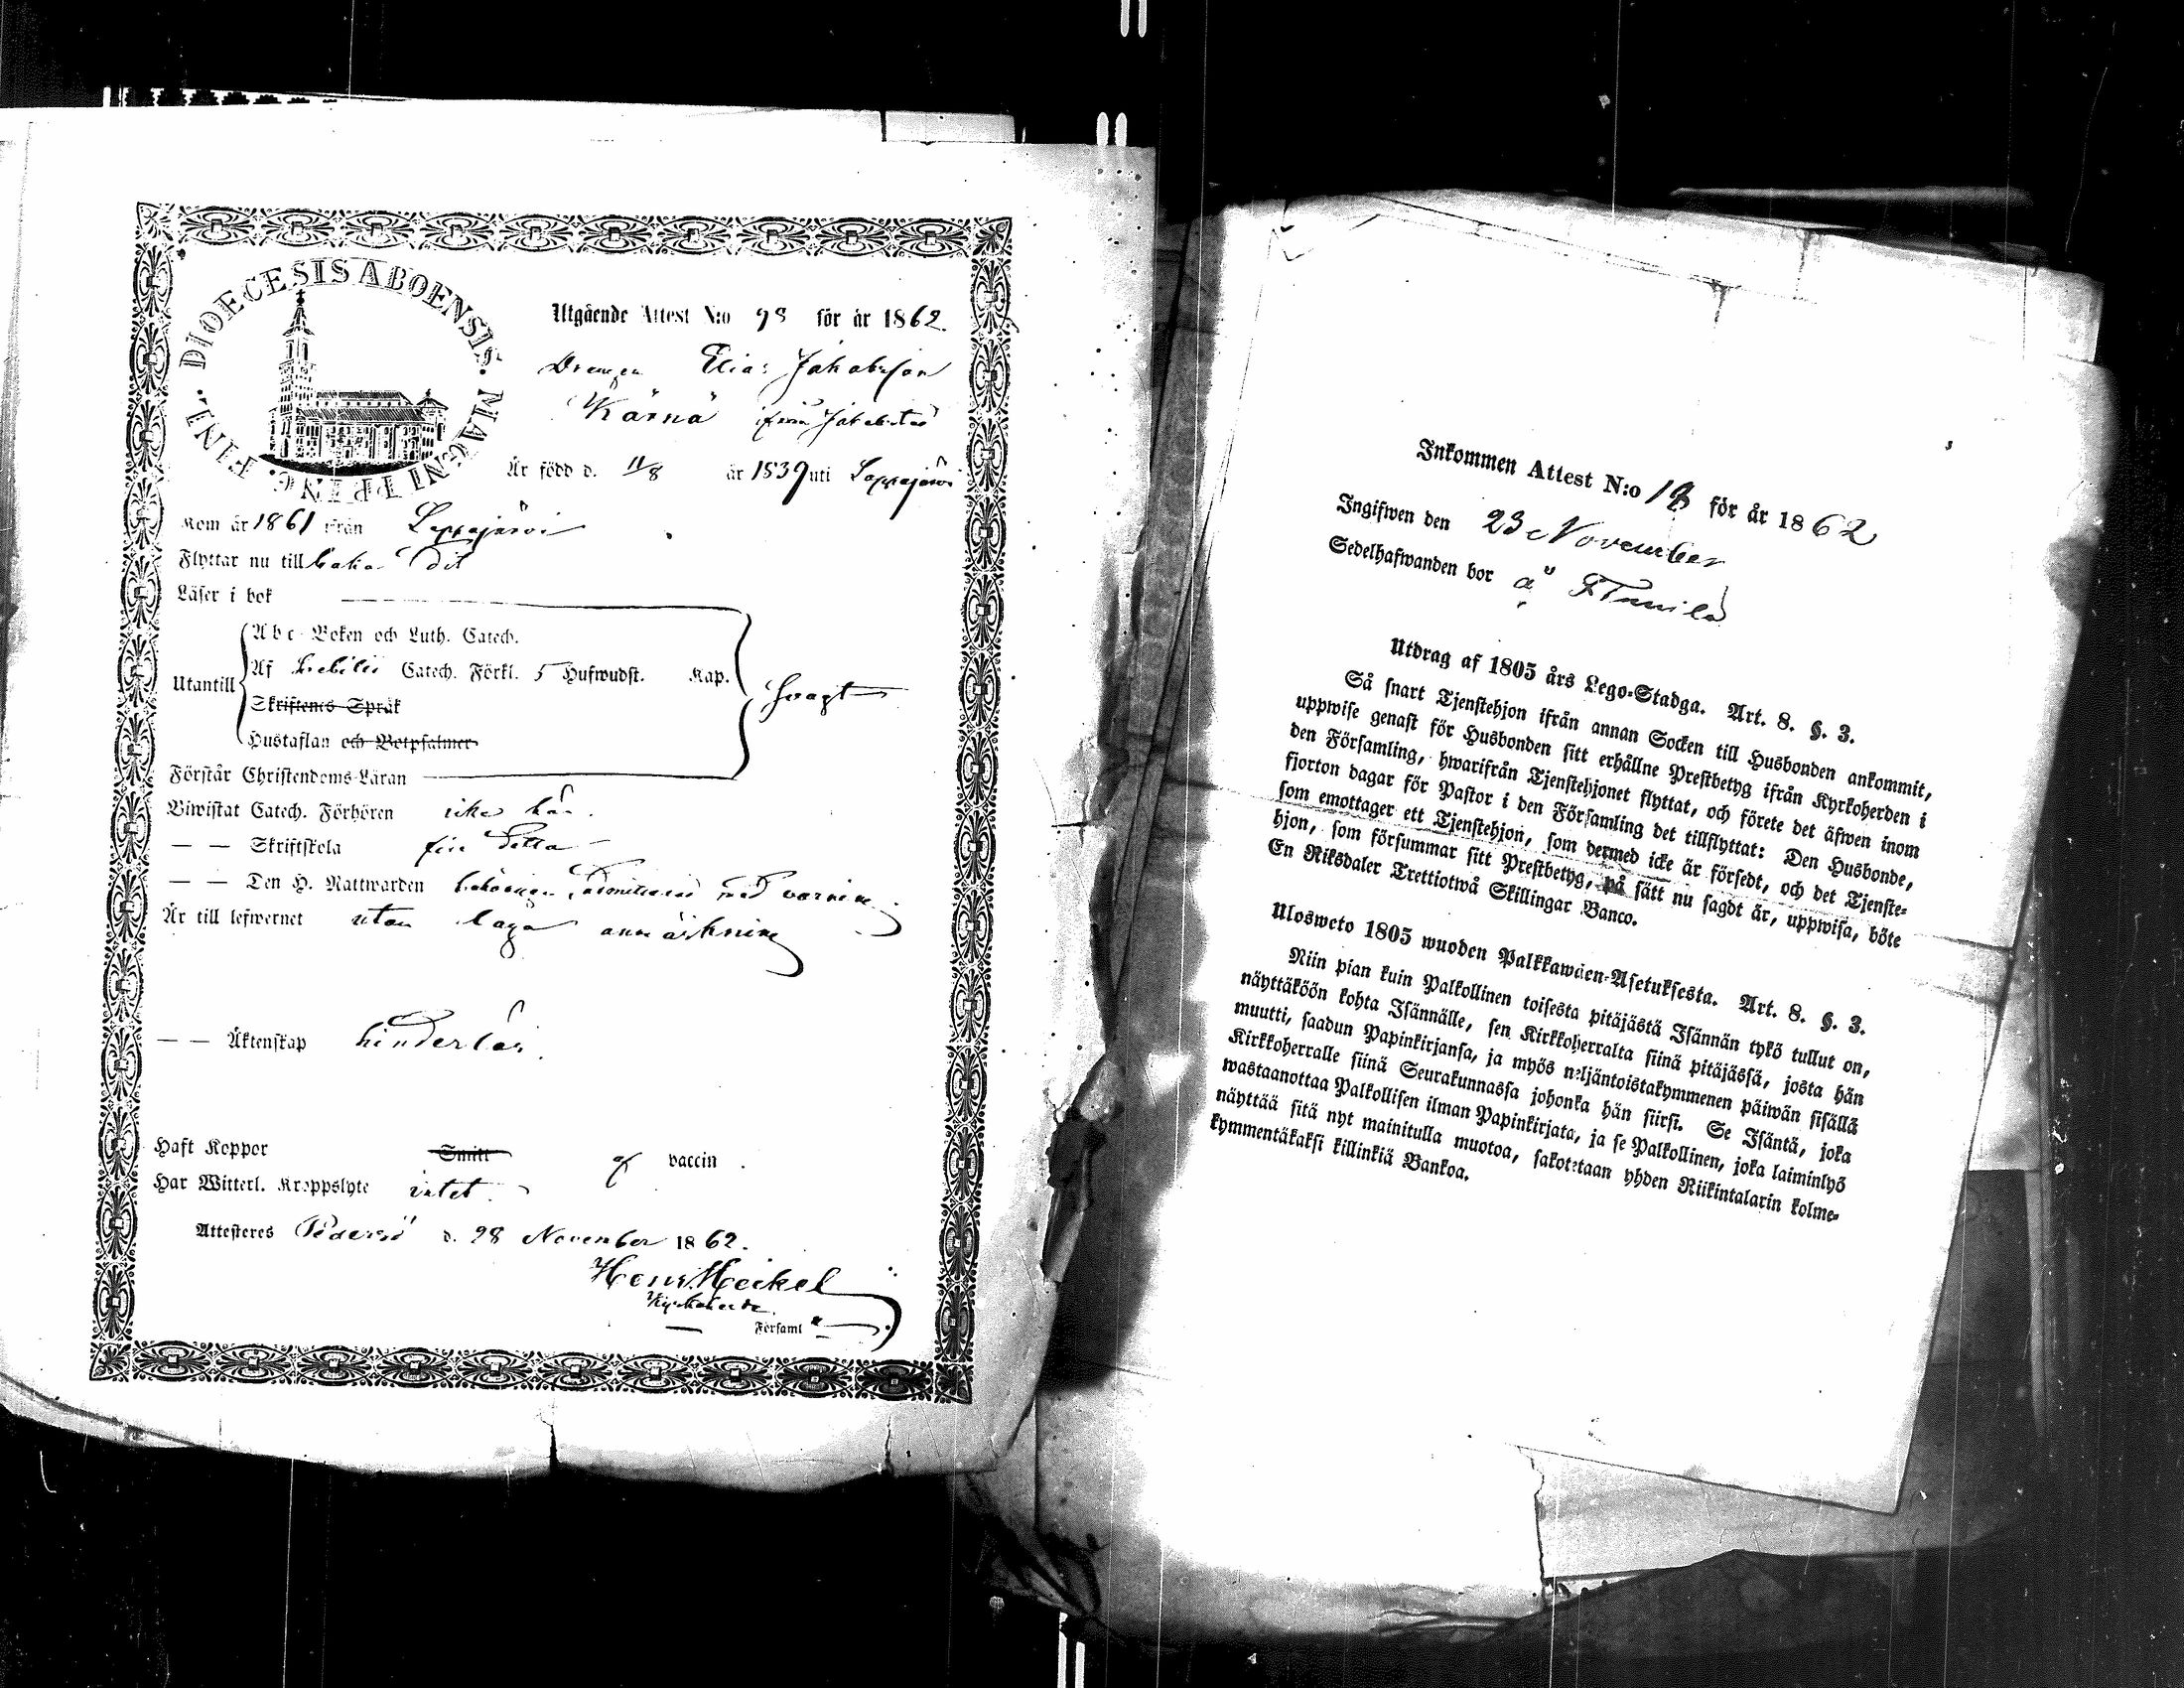 DIOECESIS ABOENSIS. MAGNI PRINC. FINL.
Utgående Attest N:o 98 för år 1862.
Drengen Elias Jakobsson
Kärnä ifrån Jakobstad
Är född d. 11/8 år 1839 uti Lappajärvi
Kom år 1861 från Lappajärvi
Flyttar nu till baka dit
Läser i bok
Abc-Boken och Luth. Catech.
Utantill Af Svebilii Catech. Förkl. 5 Hufwudst. Kap. svagt
Skriftenes Språk
Hustaflan och Botpsalmer
Förstår Christendoms-Läran
Biwistat Catech. Förhören icke här.
— — Skriftskola före detta
— — Den H. Nattwarden med varning
Är till lefwernet utan laga anmärkning
— — Äktenskap hinderlös.
Haft Koppor Smitt af vaccin.
Har Witterl. Kroppslyte intet.
Attesteres Pedersö d. 28 November 1862.
Henr. Heikel
Kyrkoherde.
Församl
Inkommen Attest N:o för år 1862
Ingifwen den 23 November
Sedelhafwanden bor å
Utdrag af 1805 års Lego-Stadga. Art. 8. §. 3.
Så snart Tjenstehjon ifrån annan Socken till Husbonden ankommit,
uppwise genast för Husbonden sitt erhållne Prestbetyg ifrån Kyrkoherden i
den Församling, hwarifrån Tjenstehjonet flyttat, och förete det äfwen inom
fjorton dagar för Pastor i den Församling det tillflyttat: Den Husbonde,
som emottager ett Tjenstehjon, som dermed icke är försedt, och det Tjenste-
hjon, som försummar sitt Prestbetyg, på sätt nu sagdt är, uppwisa, böte
En Riksdaler Trettiotwå Skillingar Banco.
Ulosweto 1805 wuoden Palkkawäen-Asetuksesta. Art. 8. §. 3.
Niin pian kuin Palkollinen toisesta pitäjästä Isännän tykö tullut on,
näyttäköön kohta Isännälle, sen Kirkkoherralta siinä pitäjässä, josta hän
muutti, saadun Papinkirjansa, ja myös neljäntoistakymmenen päiwän sisällä
Kirkkoherralle siinä Seurakunnassa johonka hän siirsi. Se Isäntä, joka
wastaanottaa Palkollisen ilman Papinkirjata, ja se Palkollinen, joka laiminlyö
näyttää sitä nyt mainitulla muotoa, sakotetaan yhden Riikintalarin kolme-
kymmentäkaksi killinkiä Bankoa.